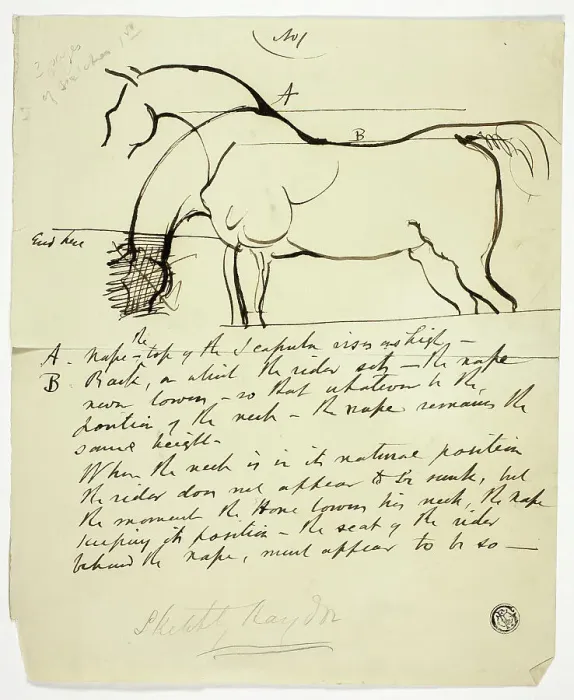 No 1
3 pages
of Sketches 1st
A
B
End here
A. nape - the top of the Scapula rises as high -
B Back, on which the rider sits - the nape
never lowers - so that whatever be the
position of the neck - the nape remains the
same height -
When the neck is in its natural position
the rider does not appear to be sunk, but
the moment the Horse lowers his neck, the nape
keeping its position - the seat of the rider
behind the nape, must appear to be so —
Sketch by Haydon